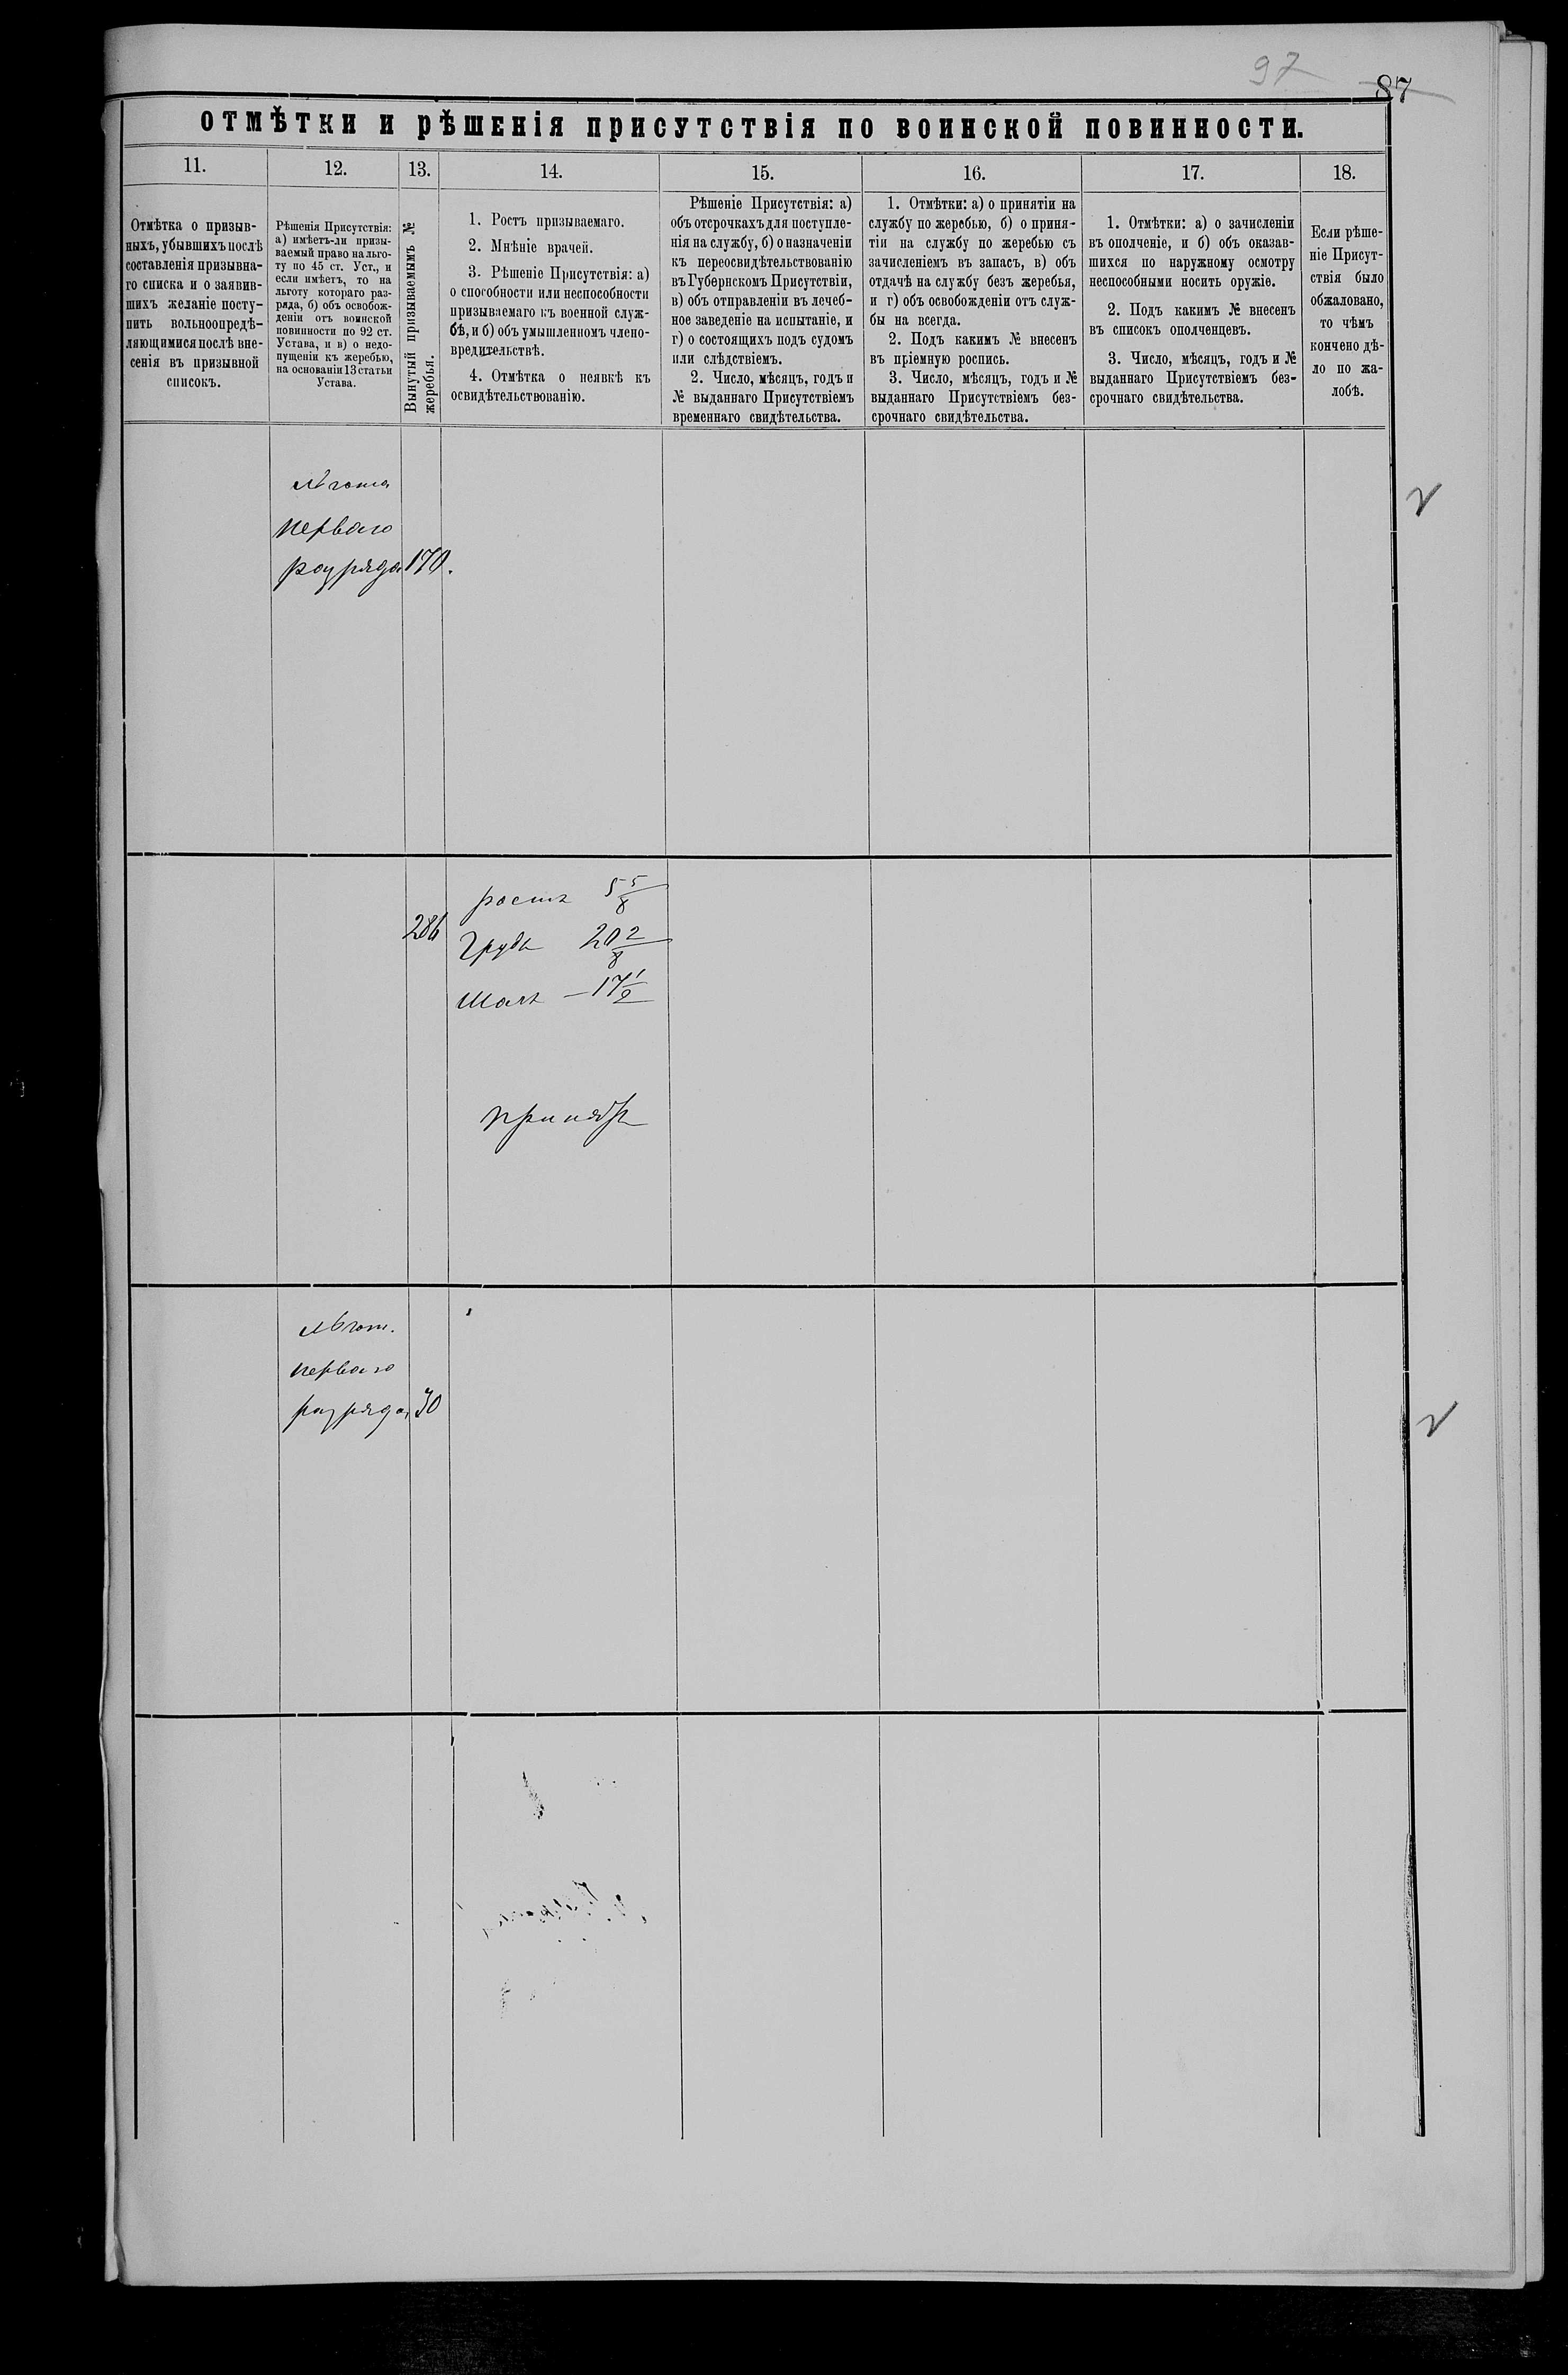 97
87
ОТМѢТКИ И РѢШЕНІЯ ПРИСУТСТВІЯ ПО ВОИНСКОЙ ПОВИННОСТИ.
11.
12.
13.
14.
15.
16.
17.
18.
Отмѣтка о призыв-
ныхъ, убывшихъ послѣ
составленія призывна-
го списка и о заявив-
шихъ желаніе посту-
пить вольноопредѣ-
ляющимися послѣ вне-
сенія въ призывной
списокъ.
Рѣшенія Присутствія:
а) имѣетъ-ли призы-
ваемый право на льго-
ту по 45 ст. Уст., и
если имѣетъ, то на
льготу котораго раз-
ряда, б) объ освобож-
деніи отъ воинской
повинности по 92 ст.
Устава, и в) о недо-
пущеніи къ жеребью,
на основаніи 13 статьи
Устава.
Вынутый призываемымъ №
жеребья.
1. Ростъ призываемаго.
2. Мнѣніе врачей.
3. Рѣшеніе Присутствія: а)
о способности или неспособности
призываемаго къ военной служ-
бѣ, и б) объ умышленномъ члено-
вредительствѣ.
4. Отмѣтка о неявкѣ къ
освидѣтельствованію.
Рѣшеніе Присутствія: а)
объ отсрочкахъ для поступле-
нія на службу, б) о назначеніи
къ переосвидѣтельствованію
въ Губернскомъ Присутствіи,
в) объ отправленіи въ лечеб-
ное заведеніе на испытаніе, и
г) о состоящихъ подъ судомъ
или слѣдствіемъ.
2. Число, мѣсяцъ, годъ и
№ выданнаго Присутствіемъ
временнаго свидѣтельства.
1. Отмѣтки: а) о принятіи на
службу по жеребью, б) о приня-
тіи на службу по жеребью съ
зачисленіемъ въ запасъ, в) объ
отдачѣ на службу безъ жеребья,
и г) объ освобожденіи отъ служ-
бы на всегда.
2. Подъ какимъ № внесенъ
въ пріемную роспись.
3. Число, мѣсяцъ, годъ и №
выданнаго Присутствіемъ без-
срочнаго свидѣтельства.
1. Отмѣтки: а) о зачисленіи
въ ополченіе, и б) объ оказав-
шихся по наружному осмотру
неспособными носить оружіе.
2. Подъ какимъ № внесенъ
въ списокъ ополченцевъ.
3. Число, мѣсяцъ, годъ и №
выданнаго Присутствіемъ без-
срочнаго свидѣтельства.
Если рѣше-
ніе Присут-
ствія было
обжаловано,
то чѣмъ
кончено дѣ-
ло по жа-
лобѣ.
Льгота
перваго
разряда 170.
286
ростъ 5 5/8
грудь 20 2/8
шагъ — 17 1/2
принятъ
Льгот.
перваго
разряда 30